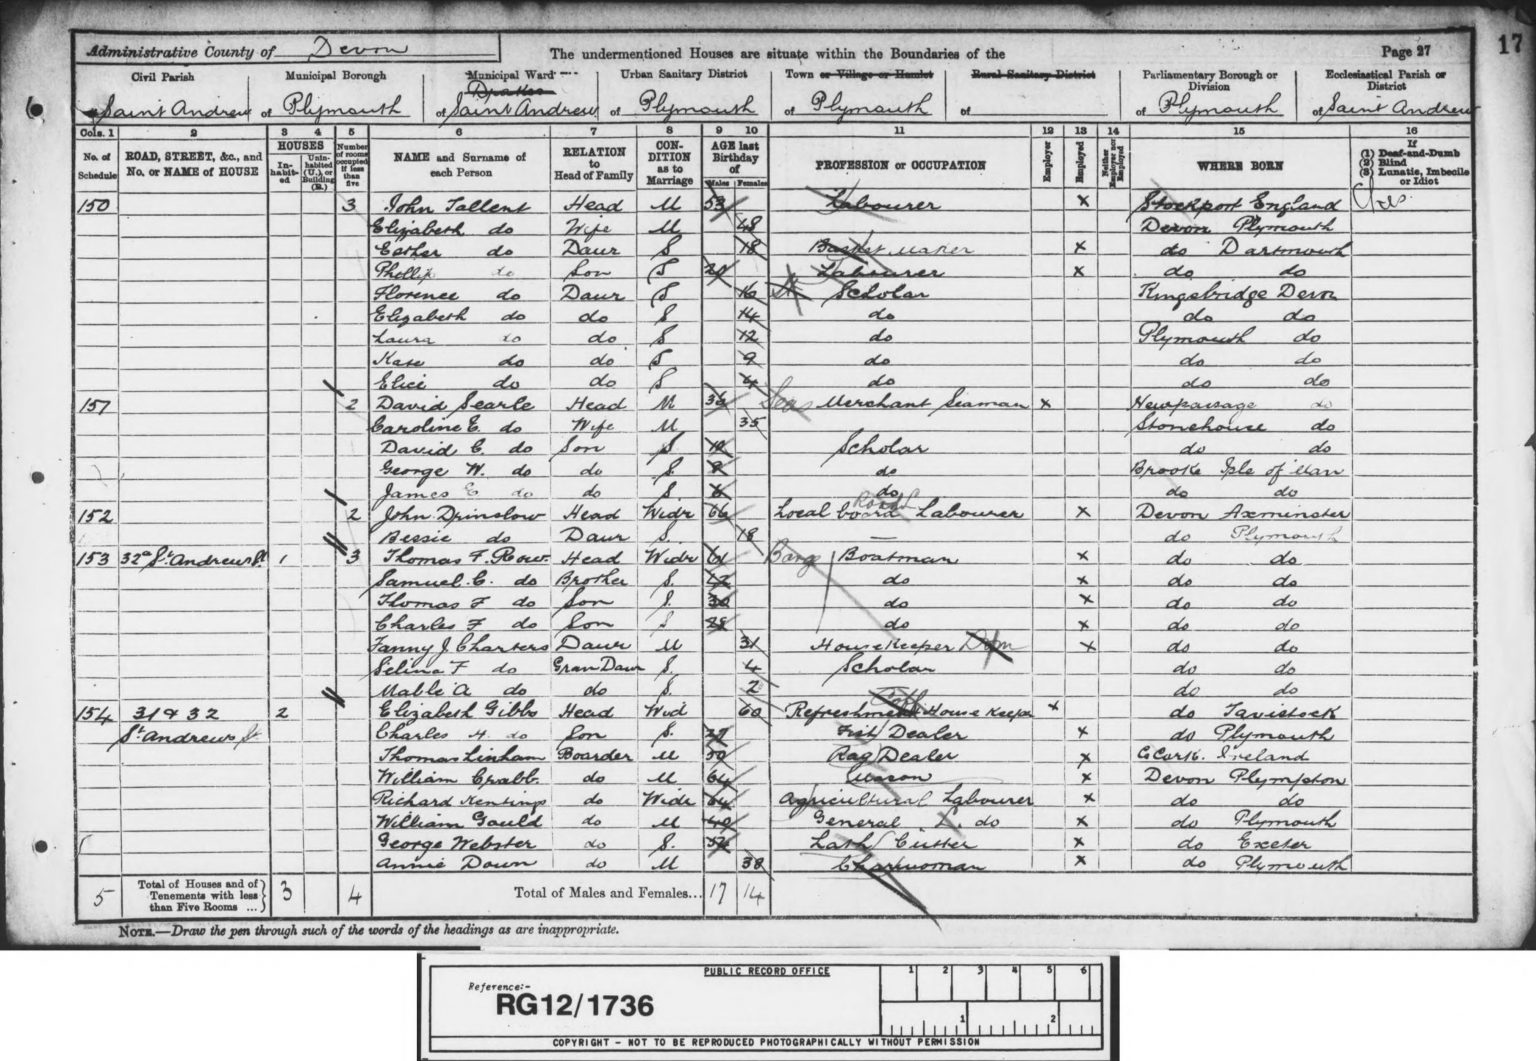 17
Administrative County of Devon
The undermentioned Houses are situate within the Boundaries of the
Page 27
Civil Parish Municipal Borough Municipal Ward Urban Sanitary District Town or Village or Hamlet Rural Sanitary District Parliamentary Borough or Division Ecclesiastical Parish or District
Drakes
of Saint Andrew of Plymouth of Saint Andrew of Plymouth of Plymouth of of Plymouth of Saint Andrew
Cols. 1 2 3 4 5 6 7 8 9 10 11 12 13 14 15 16
No. of Schedule ROAD, STREET, &c., and No. or NAME of HOUSE HOUSES Inhabited Uninhabited (U.), or Building (B.) Number of rooms occupied if less than five NAME and Surname of each Person RELATION to Head of Family CONDITION as to Marriage AGE last Birthday of Males Females PROFESSION or OCCUPATION Employer Employed Neither Employer nor Employed WHERE BORN If (1) Deaf-and-Dumb (2) Blind (3) Lunatic, Imbecile or Idiot
150 3 John Tallent Head M 53 Labourer x Stockport England
Elizabeth do Wife M 48 Devon Plymouth
Esther do Daur S 18 Basket Maker x do Dartmouth
Phillip do Son S 20 Labourer x do do
Florence do Daur S 16 Scholar Kingsbridge Devon
Elizabeth do do S 14 do do do
Laura do do S 12 do Plymouth do
Kate do do S 9 do do do
Elice do do S 4 do do do
151 2 David Searle Head M 36 Seas Merchant Seaman x Newpassage do
Caroline E. do Wife M 35 Stonehouse do
David C. do Son S Scholar do do
George W. do do S. do Brooke Isle of Man
James E do do S. 6 do do do
152 2 John Drinslow Head Widr 66 Local board Road Labourer x Devon Axminster
Bessie do Daur S. 18 — do Plymouth
153 32a St. Andrews St. 1 3 Thomas F. Row Head Widr 61 Barge Boatman x do do
Samuel C. do Brother S. do x do do
Thomas F do Son S. 30 do x do do
Charles F do Son S do x do do
Fanny J Charters Daur M 31 Housekeeper Dom x do do
Selina F do Gran Daur S. 4 Scholar do do
Mable A do do S. 2 do do
154 31 & 32 2 Elizabeth Gibbs Head Wid 60 Refreshment House Keeper x do Tavistock
St Andrews St Charles H. do Son S. Fish Dealer x do Plymouth
Thomas Linham Boarder M 50 Rag Dealer x C Cork. Ireland
William Crabb. do M 64 Mason x Devon Plympton
Richard do Widr 64 Agricultural Labourer x do do
William Gould do M 40 General L. do x do Plymouth
George Webster do S. 54 Lath Cutter x do Exeter
Annie Down do M 38 Charwoman x do Plymouth
5 Total of Houses and of Tenements with less than Five Rooms ... 3 4 Total of Males and Females... 17 14
NOTE.—Draw the pen through such of the words of the headings as are inappropriate.
PUBLIC RECORD OFFICE
1 2 3 4 5 6
Reference:-
RG12/1736
1 2
COPYRIGHT - NOT TO BE REPRODUCED PHOTOGRAPHICALLY WITHOUT PERMISSION